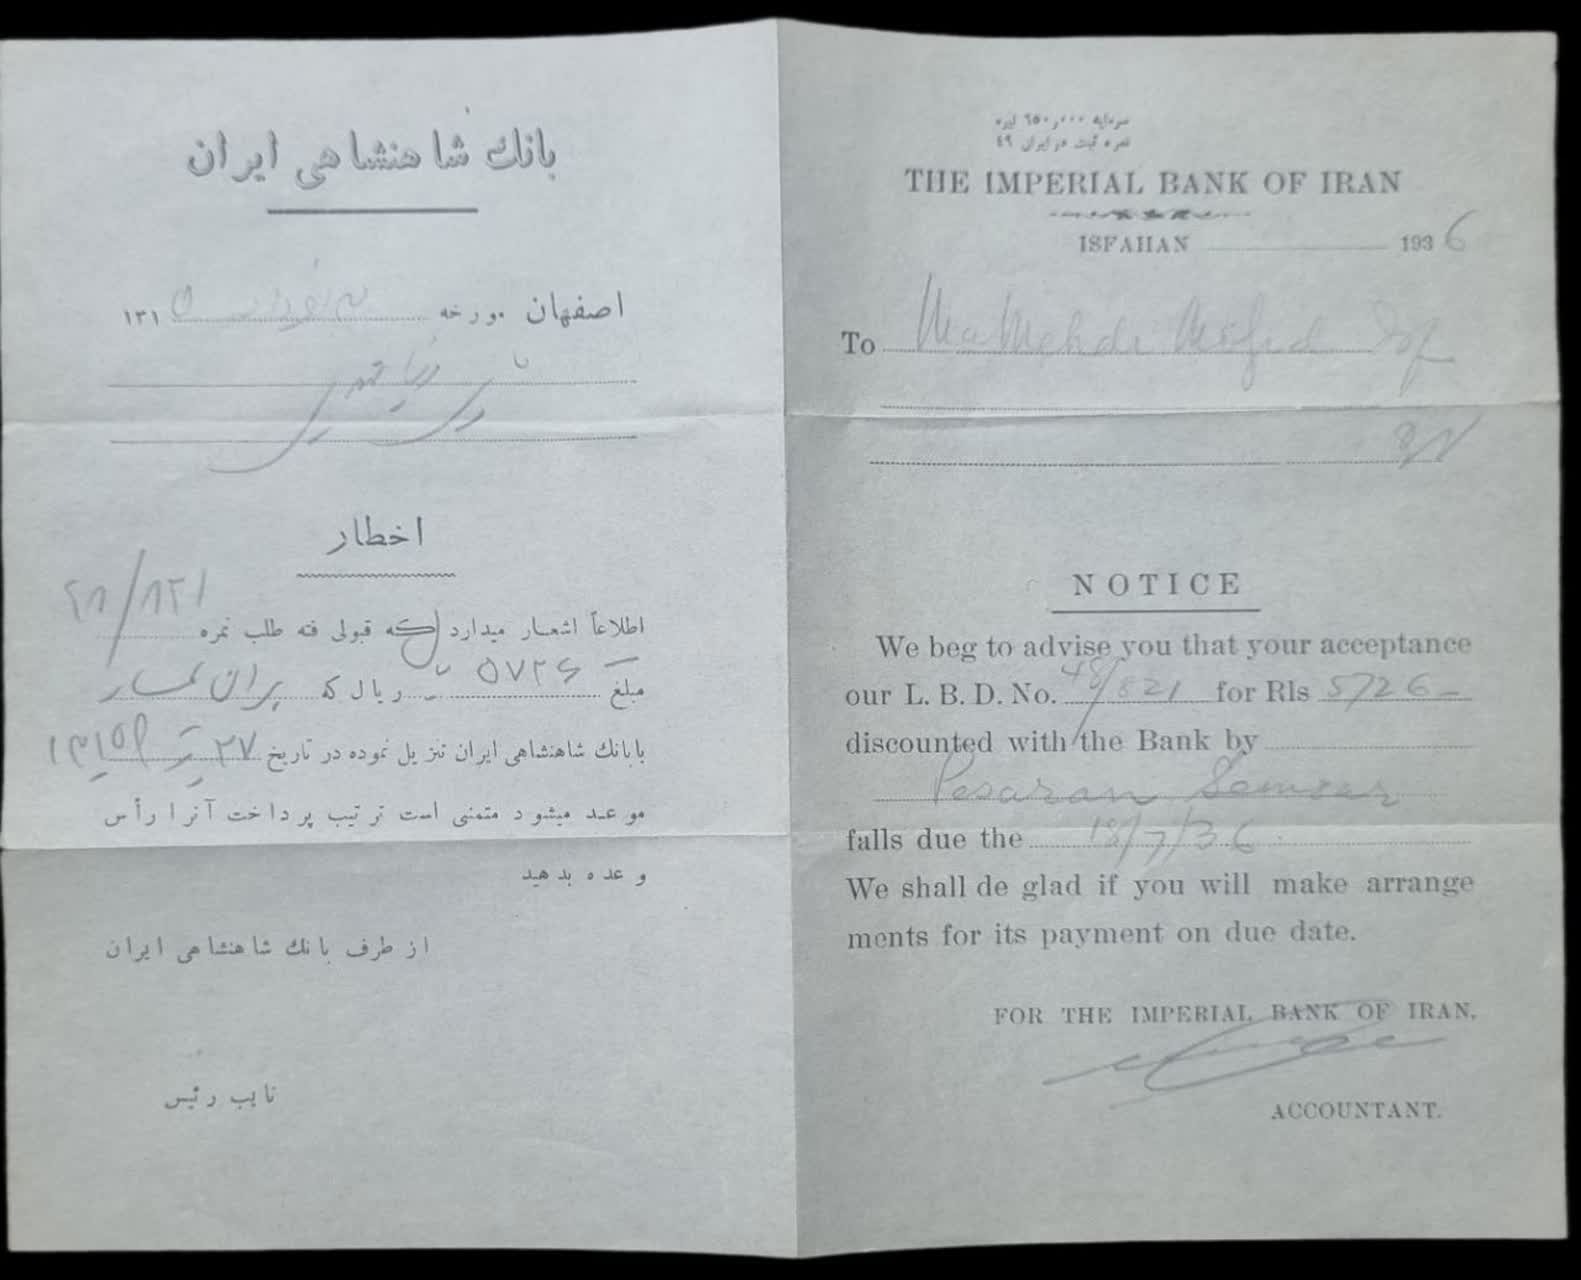 بانك شاهنشاهی ایران
اصفهان مورخه ۱۳۱۵
اخطار
۴۸/۸۲۱
اطلاعاً اشعار میدارد که قبولی فته طلب نمره
مبلغ ۵۷۲۶ ریال که پسران سمسار
بابانك شاهنشاهی ایران تنزیل نموده در تاریخ ۲۷ تیر ۱۳۱۵
موعد میشود متمنی است ترتیب پرداخت آنرا رأس
وعده بدهید
از طرف بانك شاهنشاهی ایران
نایب رئیس
سرمایه ۶۵۰٫۰۰۰ لیره
نمره ثبت در ایران ۴۹
THE IMPERIAL BANK OF IRAN
ISFAHAN 1936
To Mehdi
NOTICE
We beg to advise you that your acceptance
our L. B. D. No. 48/821 for Rls 5726-
discounted with the Bank by
Pesaran Semsar
falls due the 18/7/36.
We shall de glad if you will make arrange
ments for its payment on due date.
FOR THE IMPERIAL BANK OF IRAN.
ACCOUNTANT.